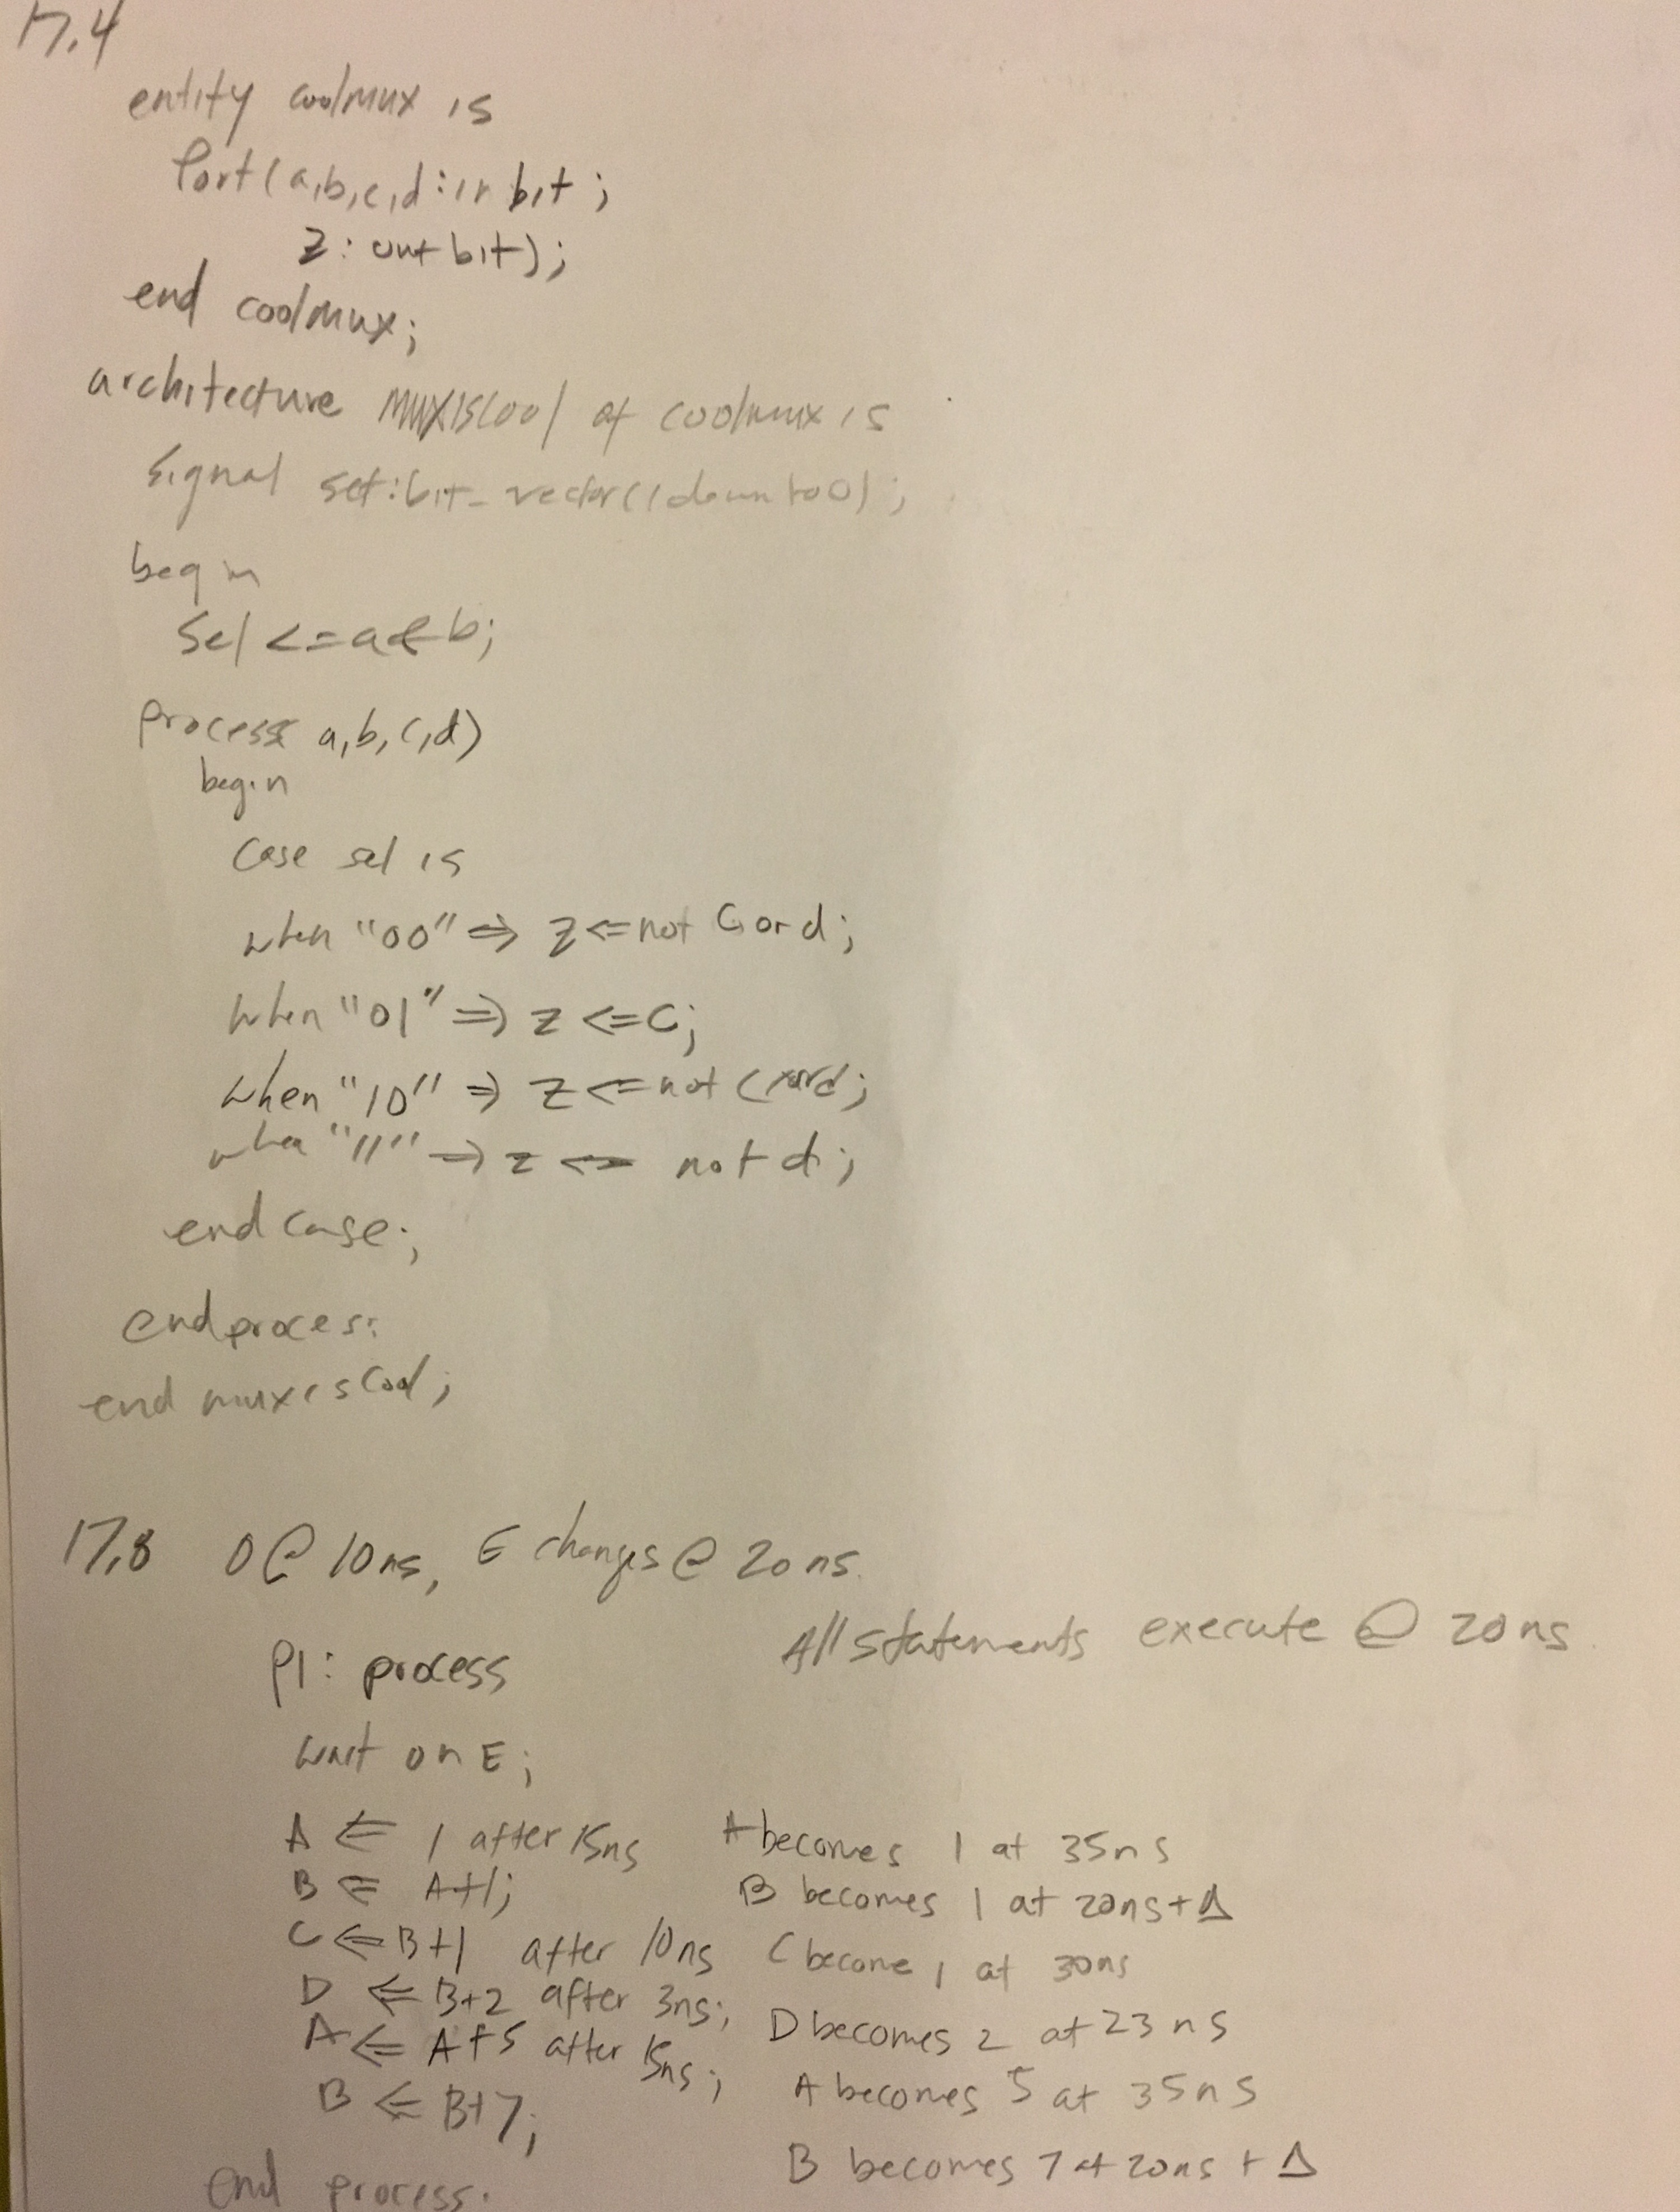 17.4
entity coolmux is
Port(a,b,c,d:in bit;
z: out bit);
end coolmux;
architecture muxiscool of coolmux is
Signal sel:bit_vector(1downto0);
begin
Sel <=a&b;
process a,b,c,d)
begin
Case sel is
when "00" => z<=not c or d;
when "01" => z <=C;
when "10" => z <=not c xor d;
when "11" => z <= not d;
end case;
end process;
end muxiscool;
17.8 0@10ns, E changes @ 20ns.
All statements execute @ 20ns.
P1: process
wait on E;
A <= 1 after 15ns A becomes 1 at 35ns
B <= A+1; B becomes 1 at 20ns+Δ
C <= B+1 after 10ns C become 1 at 30ns
D <= B+2 after 3ns; D becomes 2 at 23ns
A <= A+5 after 15ns; A becomes 5 at 35ns
B <= B+7; B becomes 7 at 20ns + Δ
end process.